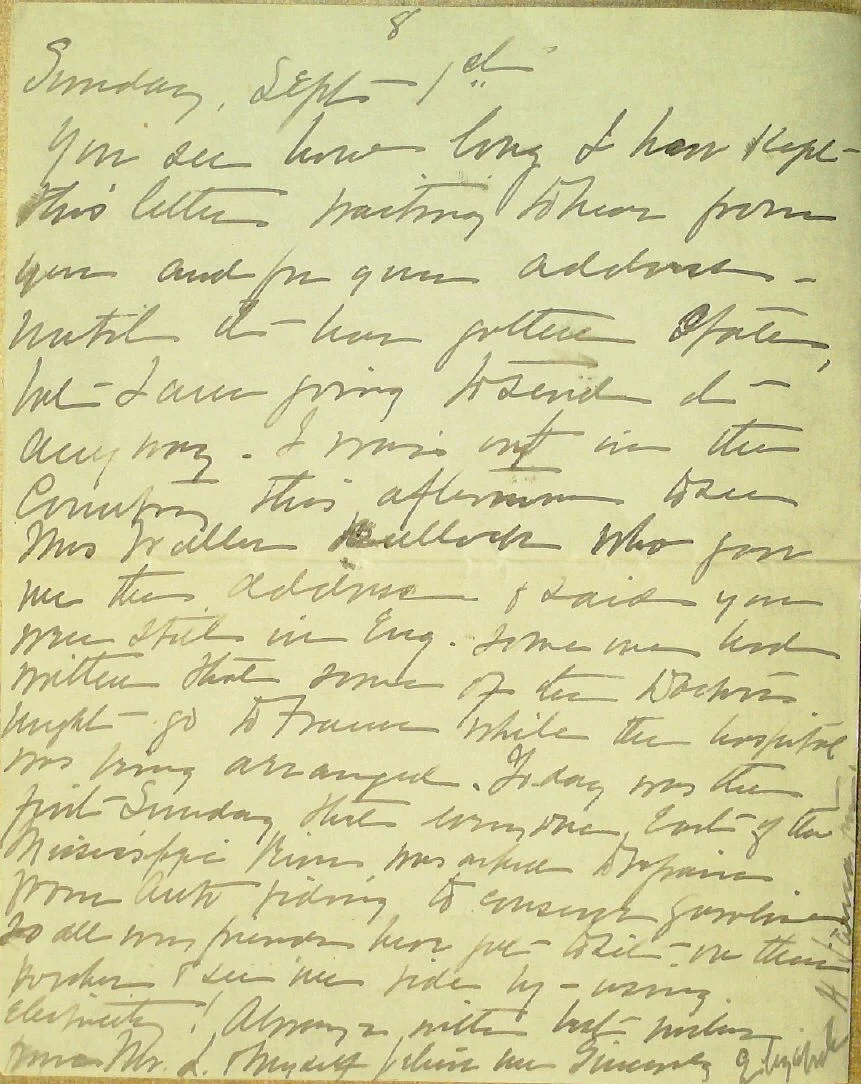 8
Sunday, Sept - 1st
You see how long I have kept
this letter waiting to hear from
you and for your address -
until it has gotten so late,
but I am going to send it
anyway. I was out in the
Country this afternoon to see
Mrs Waller Bullock who gave
me the address & said you
were still in Eng. Some one had
written that some of the Doctors
might go to France while the hospital
was being arranged. Today was the
first Sunday that every one East of the
Mississippi River was asked to refrain
from auto riding to conserve gasoline
so all my friends have got to sit on their
porches & see me ride by - using
electricity! Always with best wishes
from Mr. L. & myself believe me Sincerely Elizabeth